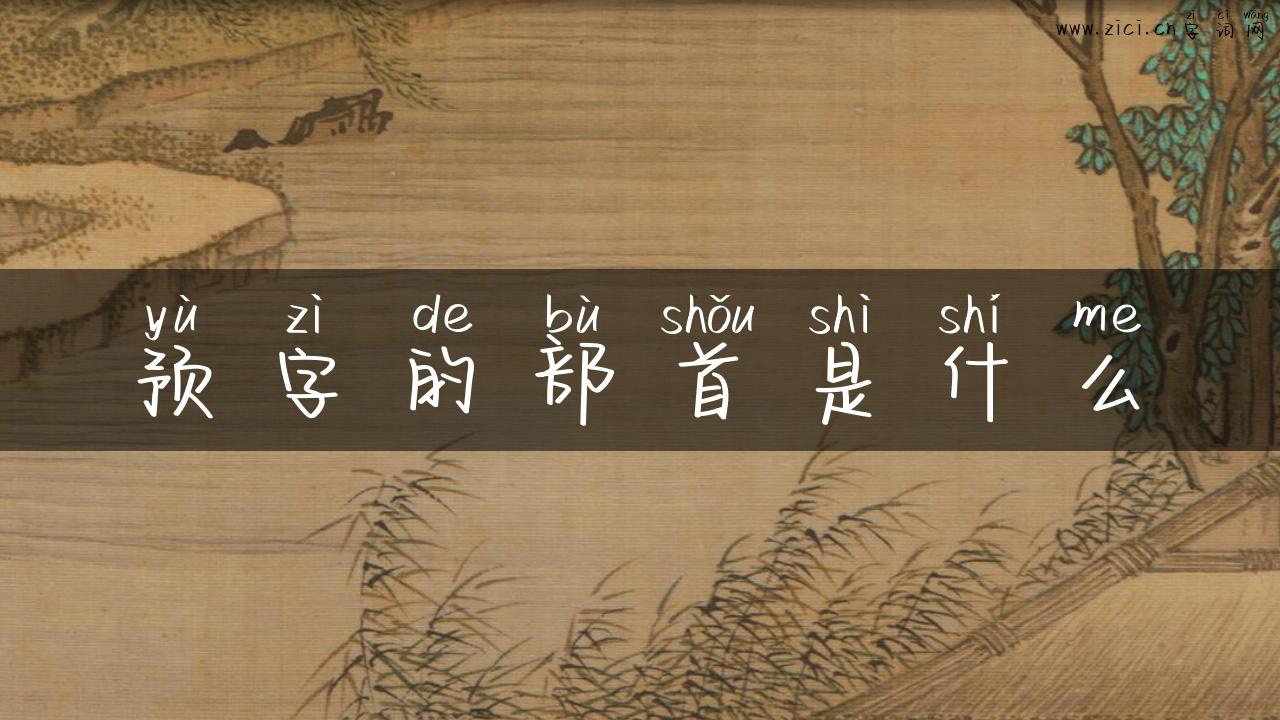 zì cí wǎng
www.zici.cn字词网
yù zì de bù shǒu shì shí me
预字的部首是什么